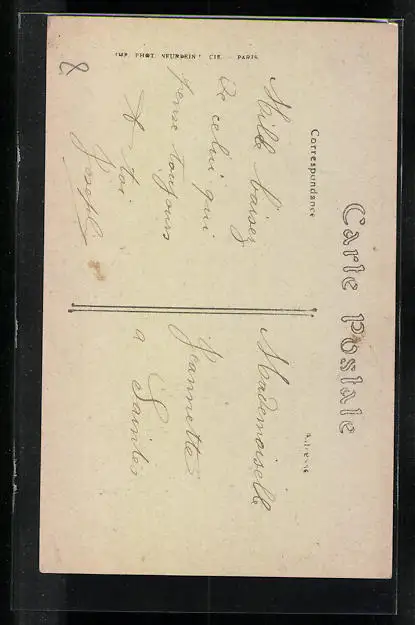 Carte Postale
Correspondance
Adresse
Mille baisers
De celui qui
pense toujours
A toi
Joseph
Mademoiselle
Jeannette
a Saintes
IMP. PHOT. NEURDEIN ET CIE. - PARIS
8